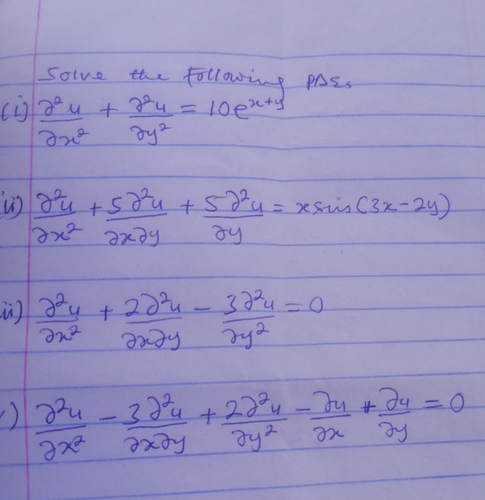 Solve the following PDEs
(i) ∂²u/∂x² + ∂²u/∂y² = 10e^(x+y)
ii) ∂²u/∂x² + 5∂²u/∂x∂y + 5∂²u/∂y = x sin(3x-2y)
iii) ∂²u/∂x² + 2∂²u/∂x∂y - 3∂²u/∂y² = 0
) ∂²u/∂x² - 3∂²u/∂x∂y + 2∂²u/∂y² - ∂u/∂x + ∂u/∂y = 0